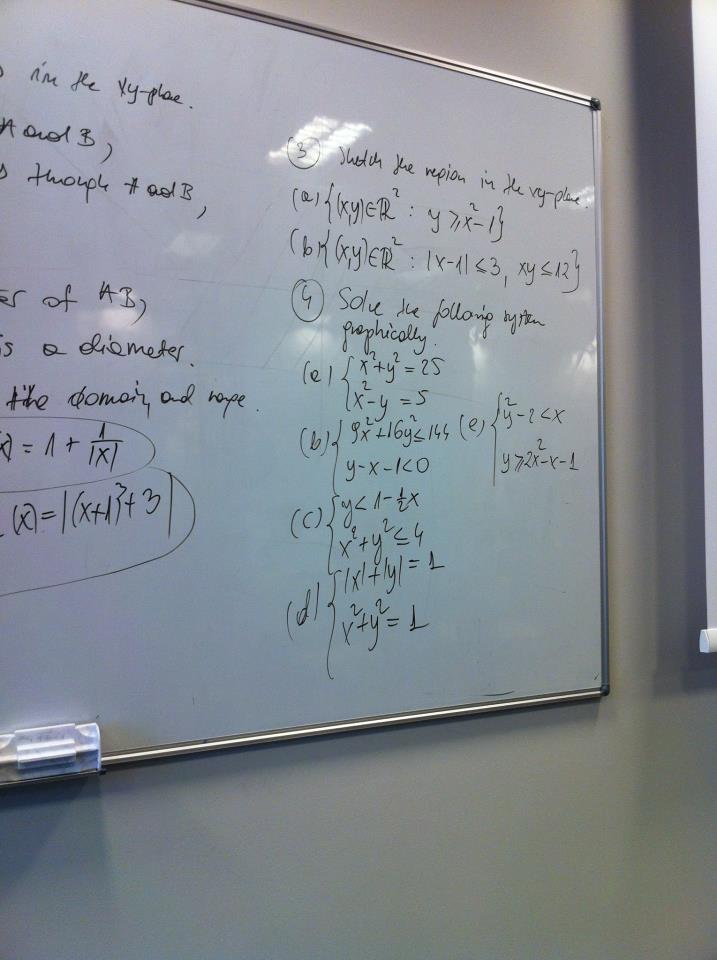 in the xy-plane.
A and B,
through A and B,
of AB,
is a diameter.
the domain and range.
(x) = 1 + 1/|x|
(x) = |(x+1)³ + 3|
(3) Sketch the region in the xy-plane.
(a) {(x,y)∈ℝ² : y ⩾ x²-1}
(b) {(x,y)∈ℝ² : |x-1| ≤ 3, xy ≤ 12}
(4) Solve the following system
graphically.
(a) { x²+y² = 25
x²-y = 5
(b) { 9x²+16y² ≤ 144
y-x-1<0
(c) { y < 1 - ½x
x²+y² ≤ 4
(d) { |x|+|y| = 1
x²+y² = 1
(e) { y²-2 < x
y ⩾ 2x²-x-1